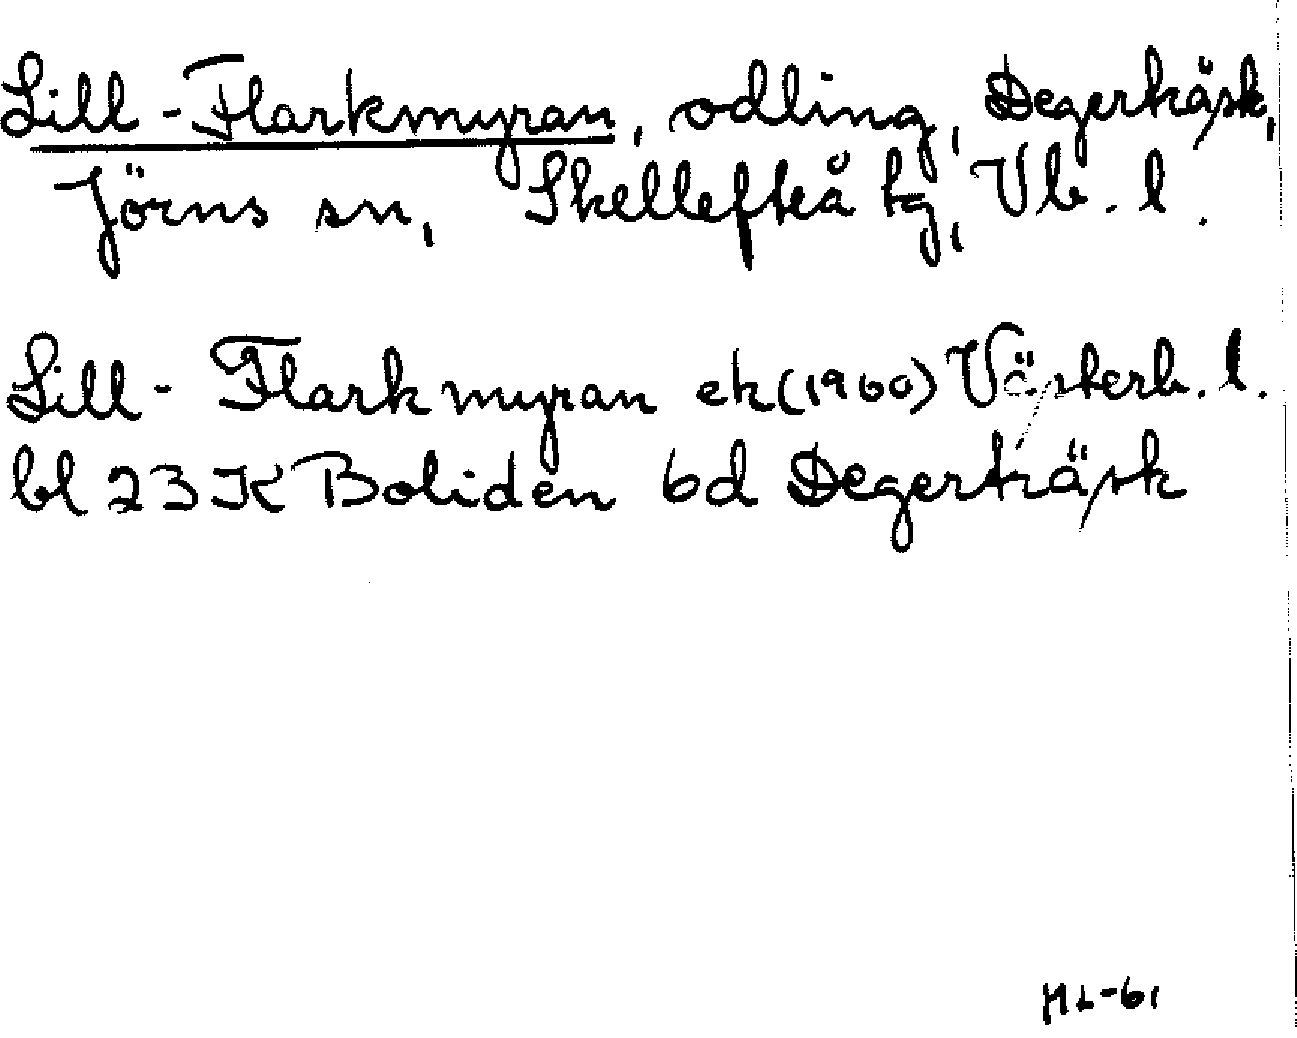 Lill-Flarkmyran, odling, Degerträsk,
Jörns sn, Skellefteå tg, Vb. l.
Lill-Flarkmyran ek (1960) Västerb. l.
bl 23 K Boliden 6d Degerträsk
HL-61